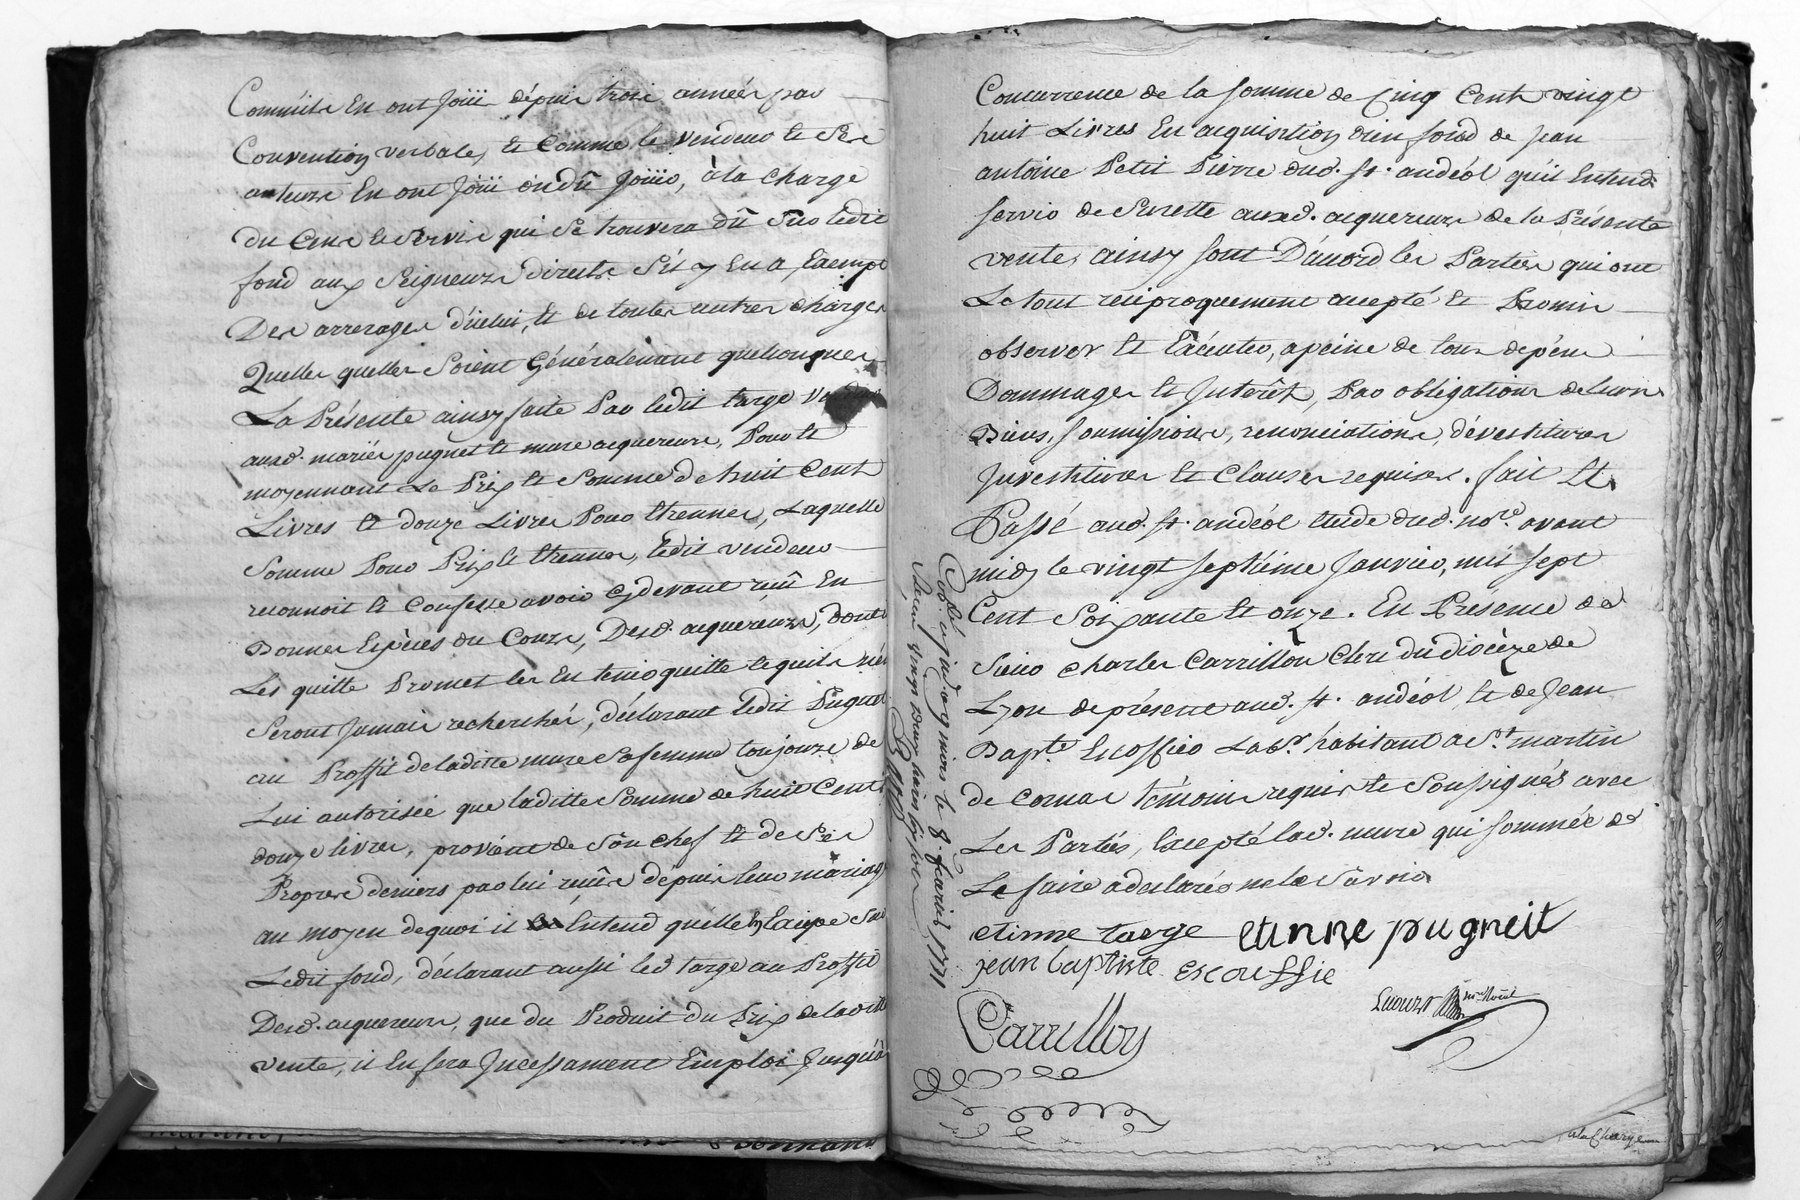 Comm'ils En ont Joüi dépuis trois années par
Convention verbale, et Comme le vendeur et Ses
auteurs En ont Joüi ou dû Joüir, à la Charge
Du Cens et Servis qui Se trouvera dû Sur ledit
fond aux Seigneurs directs S'il y En a, Exempt
Des arrerages d'icelui, et de toutes autres charges
Quelles quelles Soient Généralement quelconques
La Présente ainsy faite Par ledit targe
auxd. mariés pugnet et mure acquereurs, Pour et
moyennant Le Prix et Somme de huit Cent
Livres et douze Livres Pour Etrennes, Laquelle
Somme Pour Prix et Etrennes, ledit vendeur
reconnoit et Confesse avoir Cydevant reçû En
Bonnes Espèces du Cours, Desd. acquereurs, dont
Les quitte Promet les En tenir quitte et quils n'en
Seront Jamais recherchés, déclarant ledit Pugnet
au Proffit de laditte mure Sa femme toujours de
Lui autorisée que laditte Somme de huit Cent
douze livres, provient de Son Chef et de Ses
Propres deniers par lui reçûs dépuis leur mariage
au moyen dequoi il Entend quelle Sur
Ledit fond, déclarant aussi led. targe au Proffit
Desd. acquereurs, que du Produit du Prix de laditte
vente, il En fera Incessament Emploi Jusqu'à
Concurrence de la Somme de Cinq Cent vingt
huit Livres En acquisition d'un fond de Jean
antoine Petit Pierre dud. St. andéol qu'il Entend
servir de Surette auxd. acquereurs de la Présente
vente, ainsy sont D'accord les Parties qui ont
Le tout réciproquement accepté et Promis
observer et Exécuter, a peine de tous dépens
Dommages et Interêts, Par obligations de leurs
Biens, soumissions, renonciations, dévestitures
Investitures et Clauses requises. fait Et
Passé aud. St. andéol Etude dud. nore. avant
midy le vingt septième Janvier, mil sept
Cent Soixante et onze. En Présence de
Sieur Charles Carrillon Clerc du Diocèze de
Lyon de présent aud. St. andéol, et de Jean
Bapte. Escoffier Labr. habitant a St. martin
de Cornas témoins requis et Soussignés avec
Les Parties, Excepté lad. mure qui sommée de
Le faire a declaré ne le Savoir
etienne targe etienne pugneit
jean baptiste escouffie
Carrillon
Con.lé a giv. mois le 8. fevrier 1771